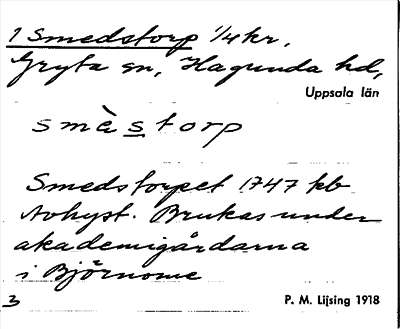 1 Smedstorp 1/4 kr.
Gryta sn, Hagunda hd,
Uppsala län
smès̲torp
Smedstorpet 1747 kb
Avhyst. Brukas under
akademigårdarna
i Björnome
3 P. M. Lijsing 1918